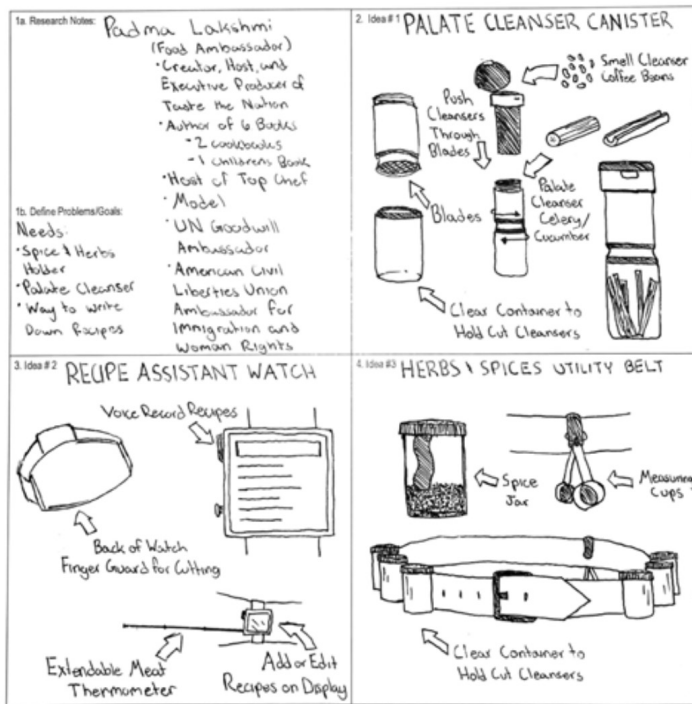 1a. Research Notes:
Padma Lakshmi
(Food Ambassador)
• Creator, Host, and
Executive Producer of
Taste the Nation
• Author of 6 Books
- 2 cookbooks
- 1 childrens Book
• Host of Top Chef
• Model
• UN Goodwill
Ambassador
• American Civil
Liberties Union
Ambassador for
Immigration and
Woman Rights
1b. Define Problems/Goals:
Needs:
• Spice & Herbs
Holder
• Palate Cleanser
• Way to write
Down Recipes
2. Idea # 1
PALATE CLEANSER CANISTER
Smell Cleanser
Coffee Beans
Push
Cleansers
Through
Blades
Blades
Palate
Cleanser
Celery/
Cucumber
Clear Container to
Hold Cut Cleansers
3. Idea # 2
RECIPE ASSISTANT WATCH
Voice Record Recipes
Back of Watch
Finger Guard for Cutting
Extendable Meat
Thermometer
Add or Edit
Recipes on Display
4. Idea #3
HERBS & SPICES UTILITY BELT
Spice
Jar
Measuring
Cups
Clear Container to
Hold Cut Cleansers